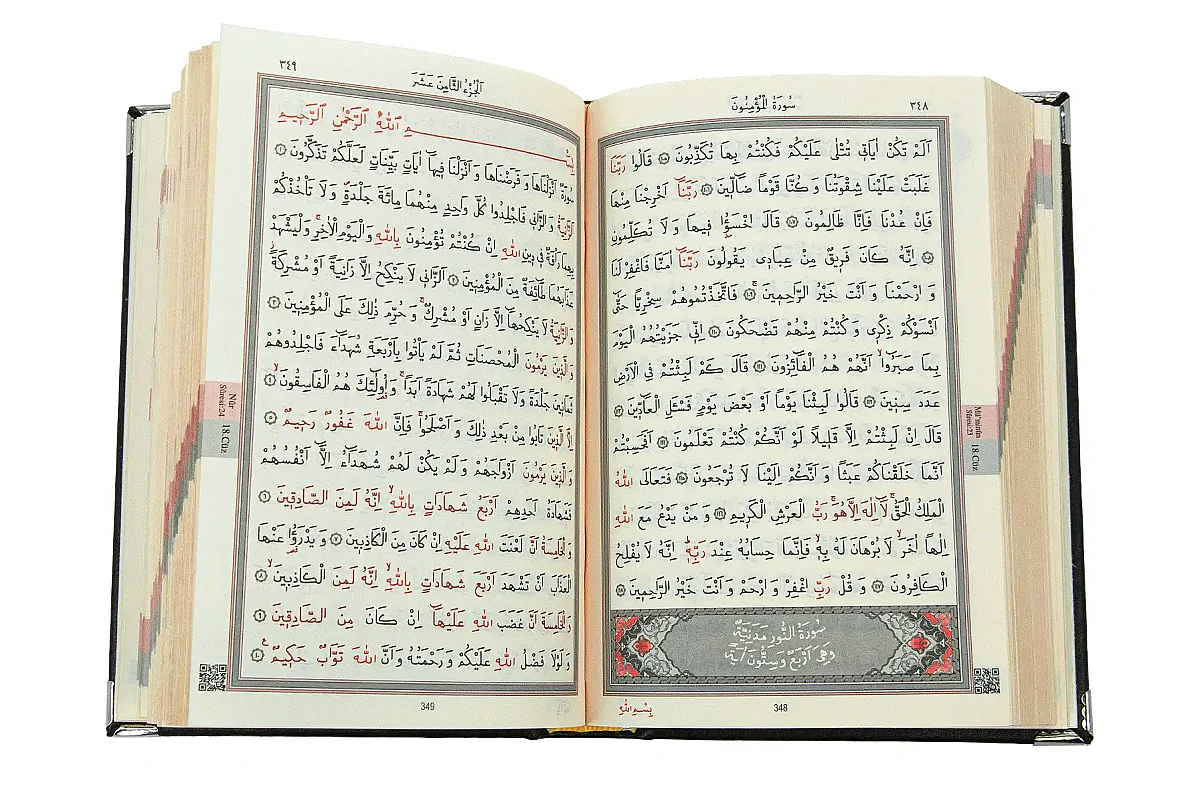 سُورَةُ الْمُؤْمِنُونَ
٣٤٨
اَلَمْ تَكُنْ اٰيَاتٖي تُتْلٰى عَلَيْكُمْ فَكُنْتُمْ بِهَا تُكَذِّبُونَ ﴿١٠٥﴾ قَالُوا رَبَّنَا
غَلَبَتْ عَلَيْنَا شِقْوَتُنَا وَ كُنَّا قَوْمًا ضَٓالّٖينَ ﴿١٠٦﴾ رَبَّنَٓا اَخْرِجْنَا مِنْهَا
فَاِنْ عُدْنَا فَاِنَّا ظَالِمُونَ ﴿١٠٧﴾ قَالَ اخْسَؤُ۫ا فٖيهَا وَ لَا تُكَلِّمُونِ
﴿١٠٨﴾ اِنَّهُ كَانَ فَرٖيقٌ مِنْ عِبَادٖي يَقُولُونَ رَبَّنَٓا اٰمَنَّا فَاغْفِرْ لَنَا
وَ ارْحَمْنَا وَ اَنْتَ خَيْرُ الرَّاحِمٖينَ ﴿١٠٩﴾ فَاتَّخَذْتُمُوهُمْ سِخْرِيًّا حَتّٰٓى
اَنْسَوْكُمْ ذِكْرٖي وَ كُنْتُمْ مِنْهُمْ تَضْحَكُونَ ﴿١١٠﴾ اِنّٖي جَزَيْتُهُمُ الْيَوْمَ
بِمَا صَبَرُٓوا اَنَّهُمْ هُمُ الْفَٓائِزُونَ ﴿١١١﴾ قَالَ كَمْ لَبِثْتُمْ فِي الْاَرْضِ
عَدَدَ سِنٖينَ ﴿١١٢﴾ قَالُوا لَبِثْنَا يَوْمًا اَوْ بَعْضَ يَوْمٍ فَسْـَٔلِ الْعَٓادّٖينَ ﴿١١٣﴾
قَالَ اِنْ لَبِثْتُمْ اِلَّا قَلٖيلًا لَوْ اَنَّكُمْ كُنْتُمْ تَعْلَمُونَ ﴿١١٤﴾ اَفَحَسِبْتُمْ
اَنَّمَا خَلَقْنَاكُمْ عَبَثًا وَ اَنَّكُمْ اِلَيْنَا لَا تُرْجَعُونَ ﴿١١٥﴾ فَتَعَالَى اللّٰهُ
الْمَلِكُ الْحَقُّۚ لَٓا اِلٰهَ اِلَّا هُوَۚ رَبُّ الْعَرْشِ الْكَرٖيمِ ﴿١١٦﴾ وَ مَنْ يَدْعُ مَعَ اللّٰهِ
اِلٰهًا اٰخَرَۙ لَا بُرْهَانَ لَهُ بِهٖۙ فَاِنَّمَا حِسَابُهُ عِنْدَ رَبِّهٖؕ اِنَّهُ لَا يُفْلِحُ
الْكَافِرُونَ ﴿١١٧﴾ وَ قُلْ رَبِّ اغْفِرْ وَ ارْحَمْ وَ اَنْتَ خَيْرُ الرَّاحِمٖينَ ﴿١١٨﴾
سُورَةُ النُّورِ مَدَنِيَّةٌ
وَهِيَ اَرْبَعٌ وَ سِتُّونَ اٰيَةً
بِسْمِ اللّٰهِ
348
Mü'minûn Sûresi:23
18.Cüz
٣٤٩
اَلْجُزْءُ الثَّامِنَ عَشَرَ
بِسْمِ اللّٰهِ الرَّحْمٰنِ الرَّحٖيمِ
سُورَةٌ اَنْزَلْنَاهَا وَ فَرَضْنَاهَا وَ اَنْزَلْنَا فٖيهَٓا اٰيَاتٍ بَيِّنَاتٍ لَعَلَّكُمْ تَذَكَّرُونَ ﴿١﴾
اَلزَّانِيَةُ وَ الزَّانٖي فَاجْلِدُوا كُلَّ وَاحِدٍ مِنْهُمَا مِائَةَ جَلْدَةٍ وَ لَا تَأْخُذْكُمْ
بِهِمَا رَأْفَةٌ فٖي دٖينِ اللّٰهِ اِنْ كُنْتُمْ تُؤْمِنُونَ بِاللّٰهِ وَ الْيَوْمِ الْاٰخِرِۚ وَ لْيَشْهَدْ
عَذَابَهُمَا طَٓائِفَةٌ مِنَ الْمُؤْمِنٖينَ ﴿٢﴾ اَلزَّانٖي لَا يَنْكِحُ اِلَّا زَانِيَةً اَوْ مُشْرِكَةًؗ
وَ الزَّانِيَةُ لَا يَنْكِحُهَٓا اِلَّا زَانٍ اَوْ مُشْرِكٌۚ وَ حُرِّمَ ذٰلِكَ عَلَى الْمُؤْمِنٖينَ ﴿٣﴾
وَ الَّذٖينَ يَرْمُونَ الْمُحْصَنَاتِ ثُمَّ لَمْ يَأْتُوا بِاَرْبَعَةِ شُهَدَٓاءَ فَاجْلِدُوهُمْ
ثَمَانٖينَ جَلْدَةً وَ لَا تَقْبَلُوا لَهُمْ شَهَادَةً اَبَدًاۚ وَ اُو۬لٰٓئِكَ هُمُ الْفَاسِقُونَۙ ﴿٤﴾
اِلَّا الَّذٖينَ تَابُوا مِنْ بَعْدِ ذٰلِكَ وَ اَصْلَحُواۚ فَاِنَّ اللّٰهَ غَفُورٌ رَحٖيمٌ ﴿٥﴾
وَ الَّذٖينَ يَرْمُونَ اَزْوَاجَهُمْ وَ لَمْ يَكُنْ لَهُمْ شُهَدَٓاءُ اِلَّٓا اَنْفُسُهُمْ
فَشَهَادَةُ اَحَدِهِمْ اَرْبَعُ شَهَادَاتٍ بِاللّٰهِۙ اِنَّهُ لَمِنَ الصَّادِقٖينَ ﴿٦﴾
وَ الْخَامِسَةُ اَنَّ لَعْنَتَ اللّٰهِ عَلَيْهِ اِنْ كَانَ مِنَ الْكَاذِبٖينَ ﴿٧﴾ وَ يَدْرَؤُ۬ا عَنْهَا
الْعَذَابَ اَنْ تَشْهَدَ اَرْبَعَ شَهَادَاتٍ بِاللّٰهِۙ اِنَّهُ لَمِنَ الْكَاذِبٖينَۙ ﴿٨﴾
وَ الْخَامِسَةَ اَنَّ غَضَبَ اللّٰهِ عَلَيْهَٓا اِنْ كَانَ مِنَ الصَّادِقٖينَ ﴿٩﴾
وَ لَوْلَا فَضْلُ اللّٰهِ عَلَيْكُمْ وَ رَحْمَتُهُ وَ اَنَّ اللّٰهَ تَوَّابٌ حَكٖيمٌ ﴿١٠﴾
349
Nûr Sûresi:24
18.Cüz